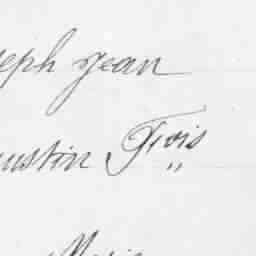 eph Jean
ustin Fçois
Marie